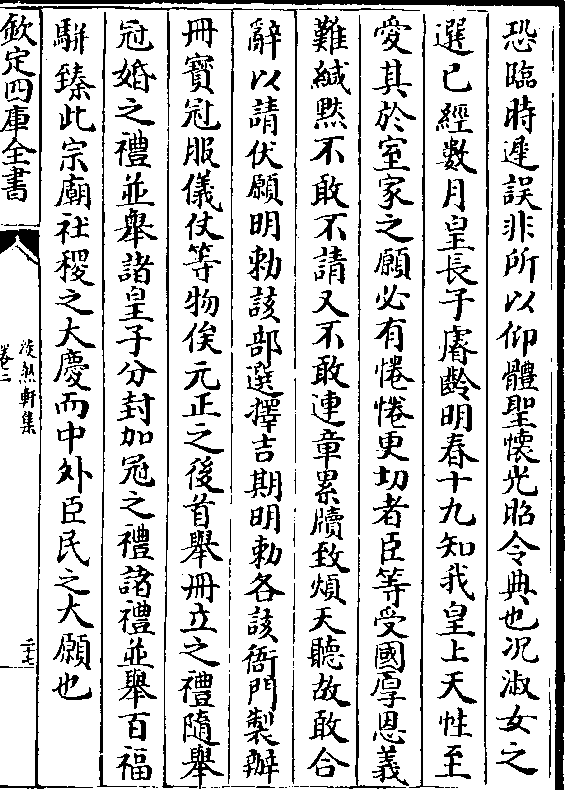 恐臨時遲誤非所以仰體聖懷光昭令典也况淑女之
選已經數月皇長子睿齡明春十九知我皇上天性至
愛其於室家之願必有惓惓更切者臣等受國厚恩義
難緘黙不敢不請又不敢連章累牘致煩天聽故敢合
辭以請伏願明勅該部選擇吉期明勅各該衙門製辦
冊寳冠服儀仗等物俟元正之後首舉冊立之禮隨舉
冠婚之禮並舉諸皇子分封加冠之禮諸禮並舉百福
駢臻此宗廟社稷之大慶而中外臣民之大願也
欽定四庫全書
淡然軒集
卷二
二十七